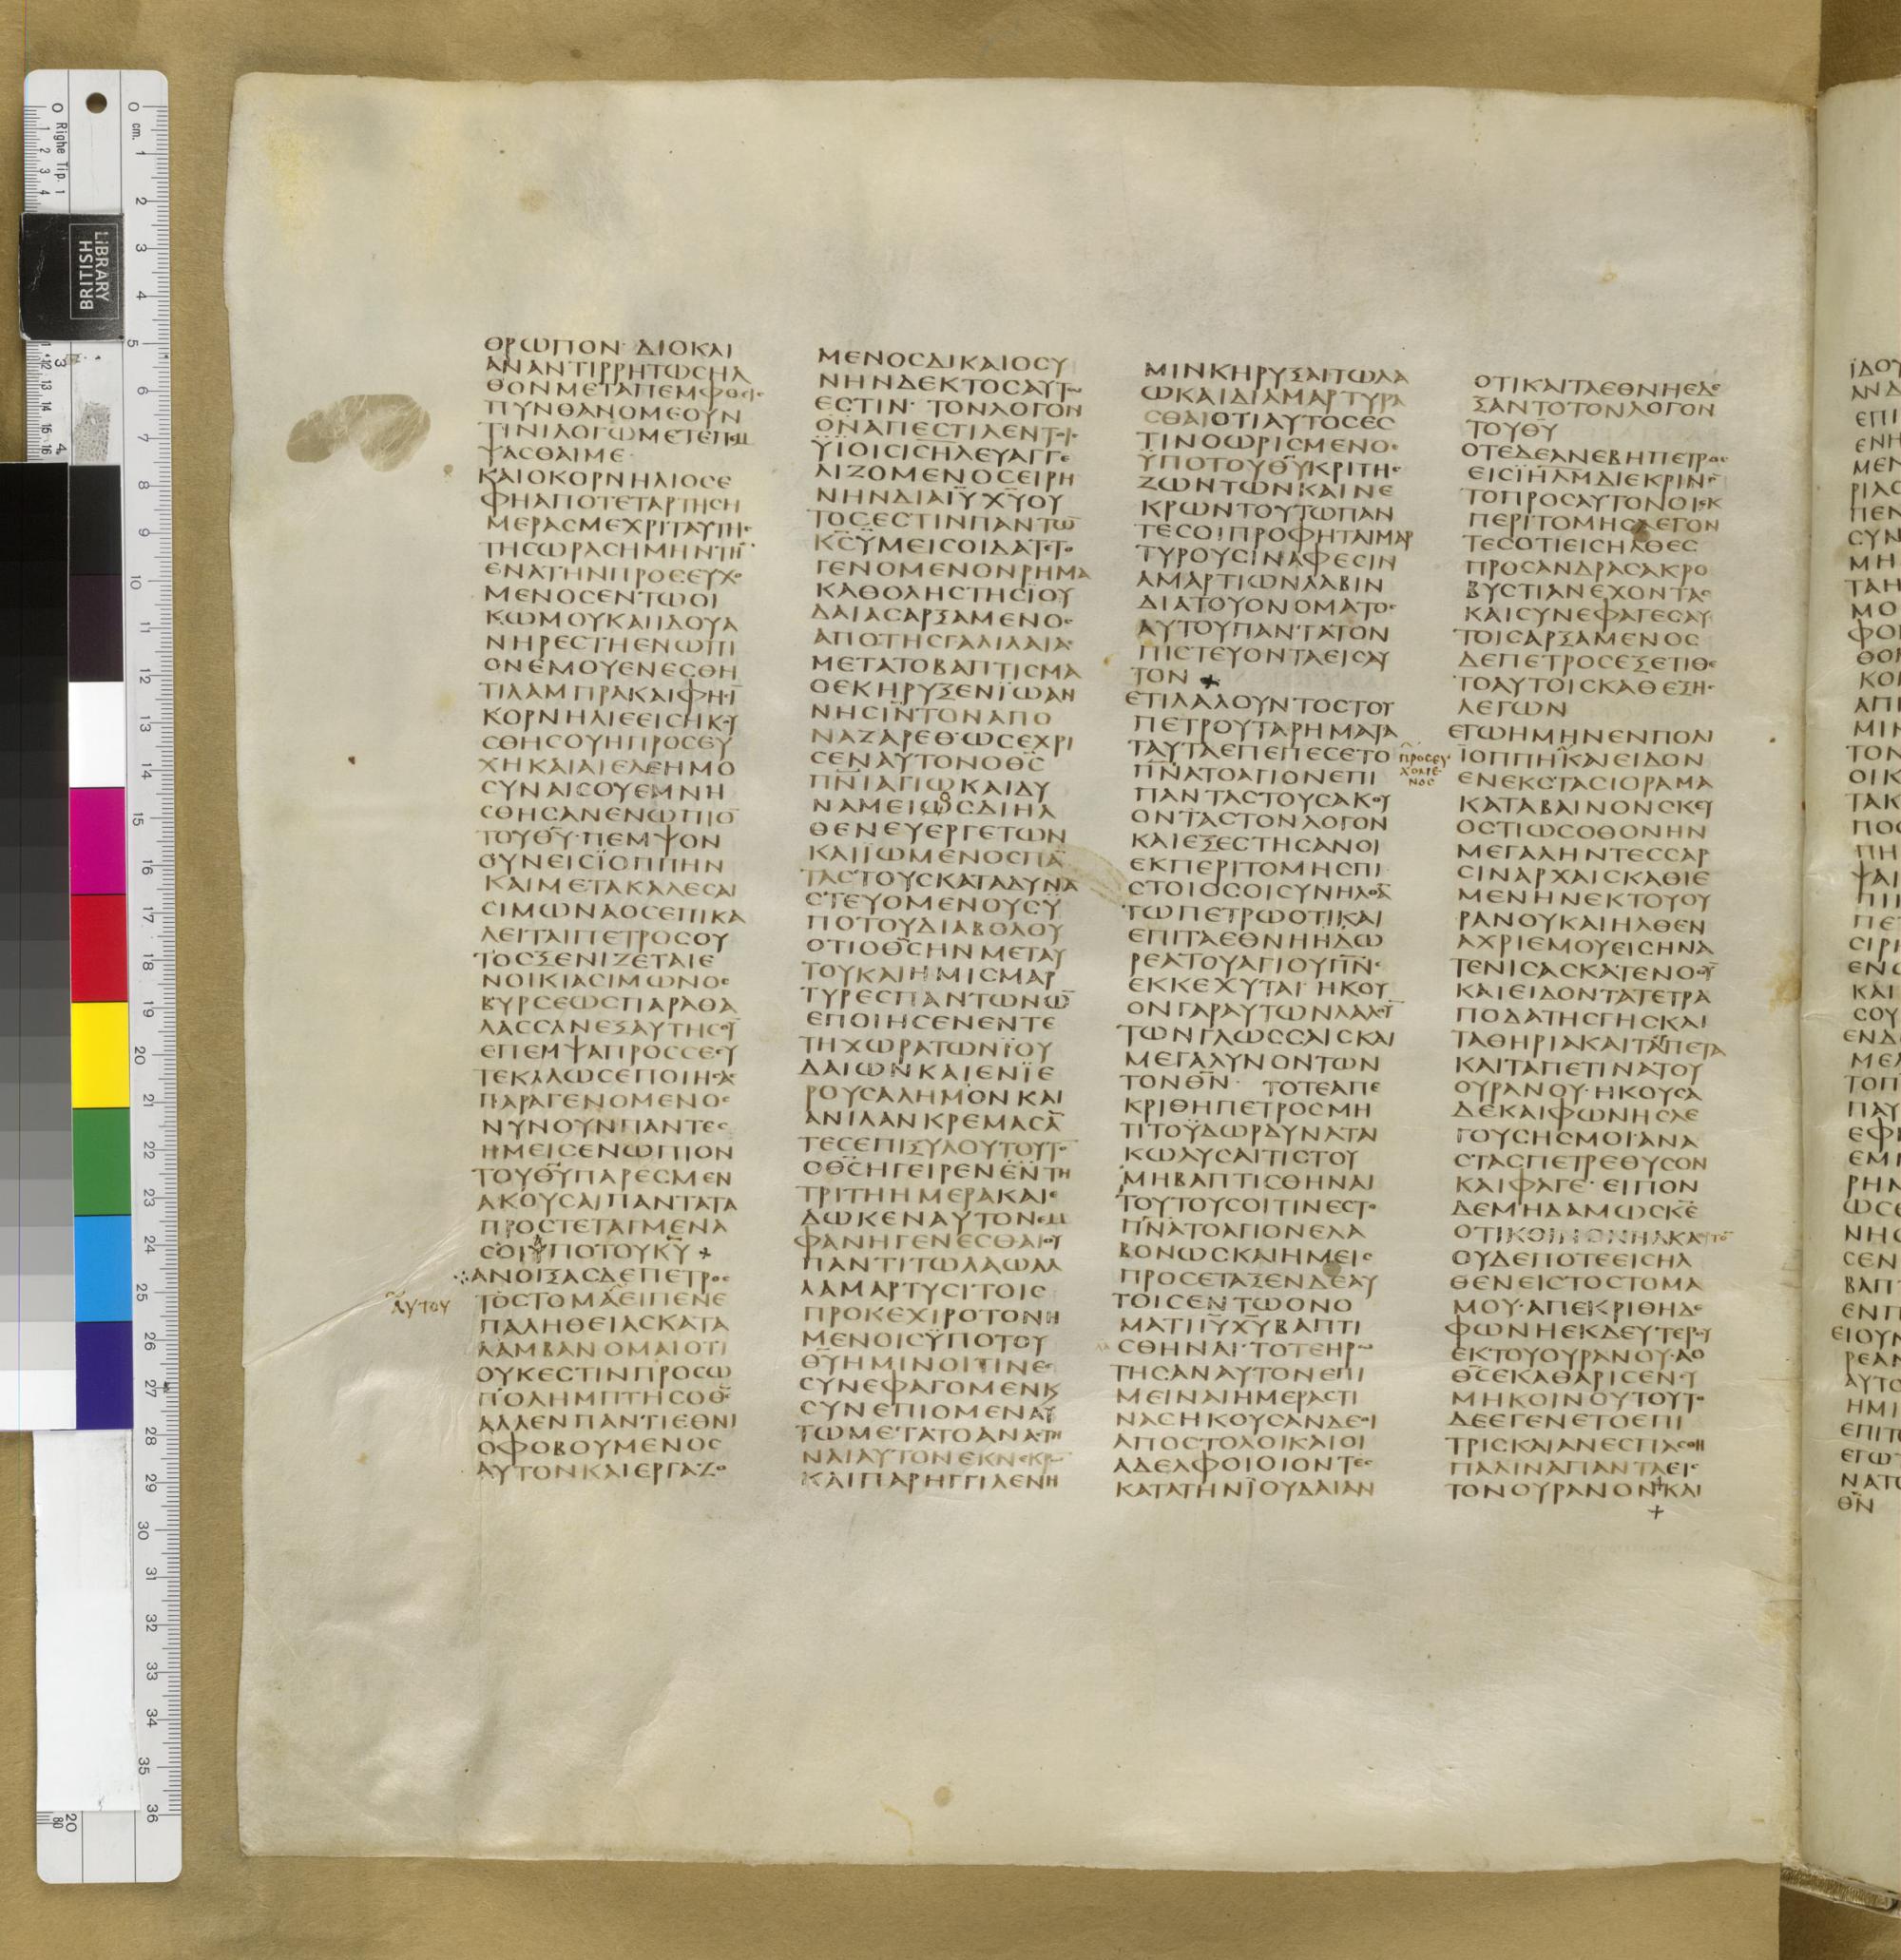 ΘΡΩΠΟΝ· ΔΙΟΚΑΙ
ΑΝΑΝΤΙΡΡΗΤΩCΗΛ
ΘΟΝΜΕΤΑΠΕΜΦΘΕΙC·
ΠΥΝΘΑΝΟΜΕΟΥΝ
ΤΙΝΙΛΟΓΩΜΕΤΕΠΕΜ
ΨΑCΘΑΙΜΕ·
ΚΑΙΟΚΟΡΝΗΛΙΟCΕ
ΦΗΑΠΟΤΕΤΑΡΤΗCΗ
ΜΕΡΑCΜΕΧΡΙΤΑΥΤΗC
ΤΗCΩΡΑCΗΜΗΝΤΗ̅
ΕΝΑΤΗΝΠΡΟCΕΥΧΟ
ΜΕΝΟCΕΝΤΩΟΙ
ΚΩΜΟΥΚΑΙΙΔΟΥΑ
ΝΗΡΕCΤΗΕΝΩΠΙ
ΟΝΕΜΟΥΕΝΕCΘΗ
ΤΙΛΑΜΠΡΑΚΑΙΦΗCΙ̅
ΚΟΡΝΗΛΙΕΕΙCΗΚΟΥ
CΘΗCΟΥΗΠΡΟCΕΥ
ΧΗΚΑΙΑΙΕΛΕΗΜΟ
CΥΝΑΙCΟΥΕΜΝΗ
CΘΗCΑΝΕΝΩΠΙΟ̅
ΤΟΥΘ̅Υ̅·ΠΕΜΨΟΝ
ΟΥΝΕΙCΪΟΠΠΗΝ
ΚΑΙΜΕΤΑΚΑΛΕCΑΙ
CΙΜΩΝΑΟCΕΠΙΚΑ
ΛΕΙΤΑΙΠΕΤΡΟCΟΥ
ΤΟCΞΕΝΙΖΕΤΑΙΕ
ΝΟΙΚΙΑCΙΜΩΝΟC
ΒΥΡCΕΩCΠΑΡΑΘΑ
ΛΑCCΑΝΕΞΑΥΤΗCΟΥ̅
ΕΠΕΜΨΑΠΡΟCCΕCΥ
ΤΕΚΑΛΩCΕΠΟΙΗCΑC
ΠΑΡΑΓΕΝΟΜΕΝΟC
ΝΥΝΟΥΝΠΑΝΤΕC
ΗΜΕΙCΕΝΩΠΙΟΝ
ΤΟΥΘ̅Υ̅ΠΑΡΕCΜΕΝ
ΑΚΟΥCΑΙΠΑΝΤΑΤΑ
ΠΡΟCΤΕΤΑΓΜΕΝΑ
CΟΙΫΠΟΤΟΥΚ̅Υ̅
ΑΝΟΙΞΑCΔΕΠΕΤΡΟC
ΑΥΤΟΥ
ΤΟCΤΟΜΑΕΙΠΕΝΕ
ΠΑΛΗΘΕΙΑCΚΑΤΑ
ΛΑΜΒΑΝΟΜΑΙΟΤΙ
ΟΥΚΕCΤΙΝΠΡΟCΩ
ΠΟΛΗΜΠΤΗCΟΘ̅C̅
ΑΛΛΕΝΠΑΝΤΙΕΘΝΙ
ΟΦΟΒΟΥΜΕΝΟC
ΑΥΤΟΝΚΑΙΕΡΓΑΖΟ
ΜΕΝΟCΔΙΚΑΙΟCΥ
ΝΗΝΔΕΚΤΟCΑΥΤΩ
ΕCΤΙΝ· ΤΟΝΛΟΓΟΝ
ΟΝΑΠΕCΤΙΛΕΝΤΟΙC
ΫΪΟΙCΙC̅Η̅Λ̅ΕΥΑΓΓΕ
ΛΙΖΟΜΕΝΟCΕΙΡΗ
ΝΗΝΔΙΑΙ̅Υ̅Χ̅Υ̅ΟΥ
ΤΟCΕCΤΙΝΠΑΝΤΩ̅
Κ̅C̅ΫΜΕΙCΟΙΔΑΤΕΤΟ
ΓΕΝΟΜΕΝΟΝΡΗΜΑ
ΚΑΘΟΛΗCΤΗCΪΟΥ
ΔΑΙΑCΑΡΞΑΜΕΝΟC
ΑΠΟΤΗCΓΑΛΙΛΑΙΑC
ΜΕΤΑΤΟΒΑΠΤΙCΜΑ
ΟΕΚΗΡΥΞΕΝΪΩΑΝ
ΝΗCΙ̅Ν̅ΤΟΝΑΠΟ
ΝΑΖΑΡΕΘ·ΩCΕΧΡΙ
CΕΝΑΥΤΟΝΟΘ̅C̅
Π̅Ν̅Ι̅ΑΓΙΩΚΑΙΔΥ
ΝΑΜΕΙΩCΔΙΗΛ
ΘΕΝΕΥΕΡΓΕΤΩΝ
ΚΑΙΪΩΜΕΝΟCΠΑ̅
ΤΑCΤΟΥCΚΑΤΑΔΥΝΑ
CΤΕΥΟΜΕΝΟΥCΫ
ΠΟΤΟΥΔΙΑΒΟΛΟΥ
ΟΤΙΟΘ̅C̅ΗΝΜΕΤΑΥ
ΤΟΥΚΑΙΗΜΙCΜΑΡ
ΤΥΡΕCΠΑΝΤΩΝΩ̅
ΕΠΟΙΗCΕΝΕΝΤΕ
ΤΗΧΩΡΑΤΩΝΪΟΥ
ΔΑΙΩΝΚΑΙΕΝΪΕ
ΡΟΥCΑΛΗΜΟΝΚΑΙ
ΑΝΙΛΑΝΚΡΕΜΑCΑ̅
ΤΕCΕΠΙΞΥΛΟΥΤΟΥΤΟ̅
ΟΘ̅C̅ΗΓΕΙΡΕΝΕΝΤΗ
ΤΡΙΤΗΗΜΕΡΑΚΑΙΕ
ΔΩΚΕΝΑΥΤΟΝΕΜ
ΦΑΝΗΓΕΝΕCΘΑΙΟΥ
ΠΑΝΤΙΤΩΛΑΩΑΛ
ΛΑΜΑΡΤΥCΙΤΟΙC
ΠΡΟΚΕΧΙΡΟΤΟΝΗ
ΜΕΝΟΙCΫΠΟΤΟΥ
Θ̅Υ̅ΗΜΙΝΟΙΤΙΝΕC
CΥΝΕΦΑΓΟΜΕΝΚ
CΥΝΕΠΙΟΜΕΝΑΥ
ΤΩΜΕΤΑΤΟΑΝΑCΤΗ
ΝΑΙΑΥΤΟΝΕΚΝΕΚΡΩ̅
ΚΑΙΠΑΡΗΓΓΙΛΕΝΗ
ΜΙΝΚΗΡΥΞΑΙΤΩΛΑ
ΩΚΑΙΔΙΑΜΑΡΤΥΡΑ
CΘΑΙΟΤΙΑΥΤΟCΕC
ΤΙΝΟΩΡΙCΜΕΝΟC
ΫΠΟΤΟΥΘ̅Υ̅ΚΡΙΤΗC
ΖΩΝΤΩΝΚΑΙΝΕ
ΚΡΩΝΤΟΥΤΩΠΑΝ
ΤΕCΟΙΠΡΟΦΗΤΑΙΜΑΡ
ΤΥΡΟΥCΙΝΑΦΕCΙΝ
ΑΜΑΡΤΙΩΝΛΑΒΙΝ
ΔΙΑΤΟΥΟΝΟΜΑΤΟC
ΑΥΤΟΥΠΑΝΤΑΤΟΝ
ΠΙCΤΕΥΟΝΤΑΕΙCΑΥ
ΤΟΝ
ΕΤΙΛΑΛΟΥΝΤΟCΤΟΥ
ΠΕΤΡΟΥΤΑΡΗΜΑΤΑ
ΤΑΥΤΑΕΠΕΠΕCΕΤΟ
Π̅Ν̅ΑΤΟΑΓΙΟΝΕΠΙ
ΠΑΝΤΑCΤΟΥCΑΚΟΥ
ΟΝΤΑCΤΟΝΛΟΓΟΝ
ΚΑΙΕΞΕCΤΗCΑΝΟΙ
ΕΚΠΕΡΙΤΟΜΗCΠΙ
CΤΟΙΟCΟΙCΥΝΗΛΘΑ̅
ΤΩΠΕΤΡΩΟΤΙΚΑΙ
ΕΠΙΤΑΕΘΝΗΗΔΩ
ΡΕΑΤΟΥΑΓΙΟΥΠ̅Ν̅C̅
ΕΚΚΕΧΥΤΑΙ· ΗΚΟΥ
ΟΝΓΑΡΑΥΤΩΝΛΑΛΟΥ̅
ΤΩΝΓΛΩCCΑΙCΚΑΙ
ΜΕΓΑΛΥΝΟΝΤΩΝ
ΤΟΝΘ̅Ν̅· ΤΟΤΕΑΠΕ
ΚΡΙΘΗΠΕΤΡΟCΜΗ
ΤΙΤΟΫΔΩΡΔΥΝΑΤΑΙ
ΚΩΛΥCΑΙΤΙCΤΟΥ
ΜΗΒΑΠΤΙCΘΗΝΑΙ
ΤΟΥΤΟΥCΟΙΤΙΝΕCΤΟ
Π̅Ν̅ΑΤΟΑΓΙΟΝΕΛΑ
ΒΟΝΩCΚΑΙΗΜΕΙC
ΠΡΟCΕΤΑΞΕΝΔΕΑΥ
ΤΟΙCΕΝΤΩΟΝΟ
ΜΑΤΙΙ̅Υ̅Χ̅Υ̅ΒΑΠΤΙ
CΘΗΝΑΙ·ΤΟΤΕΗΡΩ
ΤΗCΑΝΑΥΤΟΝΕΠΙ
ΜΕΙΝΑΙΗΜΕΡΑCΤΙ
ΝΑCΗΚΟΥCΑΝΔΕΟΙ
ΑΠΟCΤΟΛΟΙΚΑΙΟΙ
ΑΔΕΛΦΟΙΟΙΟΝΤΕC
ΚΑΤΑΤΗΝΪΟΥΔΑΙΑΝ
ΟΤΙΚΑΙΤΑΕΘΝΗΕΔΕ
ΞΑΝΤΟΤΟΝΛΟΓΟΝ
ΤΟΥΘΥ
ΟΤΕΔΕΑΝΕΒΗΠΕΤΡΟC
ΕΙCΪ̅Η̅Λ̅Μ̅ΔΙΕΚΡΙΝΟ̅
ΤΟΠΡΟCΑΥΤΟΝΟΙΕΚ
ΠΕΡΙΤΟΜΗCΛΕΓΟΝ
ΤΕCΟΤΙΕΙCΗΛΘΕC
ΠΡΟCΑΝΔΡΑCΑΚΡΟ
ΒΥCΤΙΑΝΕΧΟΝΤΑC
ΚΑΙCΥΝΕΦΑΓΕCΑΥ
ΤΟΙCΑΡΞΑΜΕΝΟC
ΔΕΠΕΤΡΟCΕΞΕΤΙΘΕ
ΤΟΑΥΤΟΙCΚΑΘΕΞΗC
ΛΕΓΩΝ
ΕΓΩΗΜΗΝΕΝΠΟΛΙ
ΠΡΟCΕΥ
ΧΟΜΕ
ΝΟC
ΪΟΠΠΗΚΑΙΕΙΔΟΝ
ΕΝΕΚCΤΑCΙΟΡΑΜΑ
ΚΑΤΑΒΑΙΝΟΝCΚΕΥ
ΟCΤΙΩCΟΘΟΝΗΝ
ΜΕΓΑΛΗΝΤΕCCΑΡ
CΙΝΑΡΧΑΙCΚΑΘΙΕ
ΜΕΝΗΝΕΚΤΟΥΟΥ
ΡΑΝΟΥΚΑΙΗΛΘΕΝ
ΑΧΡΙΕΜΟΥΕΙCΗΝΑ
ΤΕΝΙCΑCΚΑΤΕΝΟΟΥ̅
ΚΑΙΕΙΔΟΝΤΑΤΕΤΡΑ
ΠΟΔΑΤΗCΓΗCΚΑΙ
ΤΑΘΗΡΙΑΚΑΙΤΑΕΡΠΕΤΑ
ΚΑΙΤΑΠΕΤΙΝΑΤΟΥ
ΟΥΡΑΝΟΥ·ΗΚΟΥCΑ
ΔΕΚΑΙΦΩΝΗCΛΕ
ΓΟΥCΗCΜΟΙ·ΑΝΑ
CΤΑCΠΕΤΡΕΘΥCΟΝ
ΚΑΙΦΑΓΕ· ΕΙΠΟΝ
ΔΕΜΗΔΑΜΩCΚ̅Ε̅
ΟΤΙΚΟΙΝΟΝΗΑΚΑΘΑΡΤΟ̅
ΟΥΔΕΠΟΤΕΕΙCΗΛ
ΘΕΝΕΙCΤΟCΤΟΜΑ
ΜΟΥ·ΑΠΕΚΡΙΘΗΔΕ
ΦΩΝΗΕΚΔΕΥΤΕΡΟΥ
ΕΚΤΟΥΟΥΡΑΝΟΥ·ΑΟ
Θ̅C̅ΕΚΑΘΑΡΙCΕΝCΥ
ΜΗΚΟΙΝΟΥΤΟΥΤΟ
ΔΕΕΓΕΝΕΤΟΕΠΙ
ΤΡΙCΚΑΙΑΝΕCΠΑCΘΗ
ΠΑΛΙΝΑΠΑΝΤΑΕΙC
ΤΟΝΟΥΡΑΝΟΝΚΑΙ
BRITISH
LIBRARY